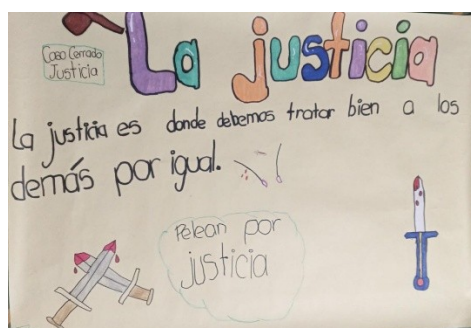 La justicia
Caso Cerrado
Justicia
La justicia es donde debemos tratar bien a los
demás por igual.
Pelean por
justicia